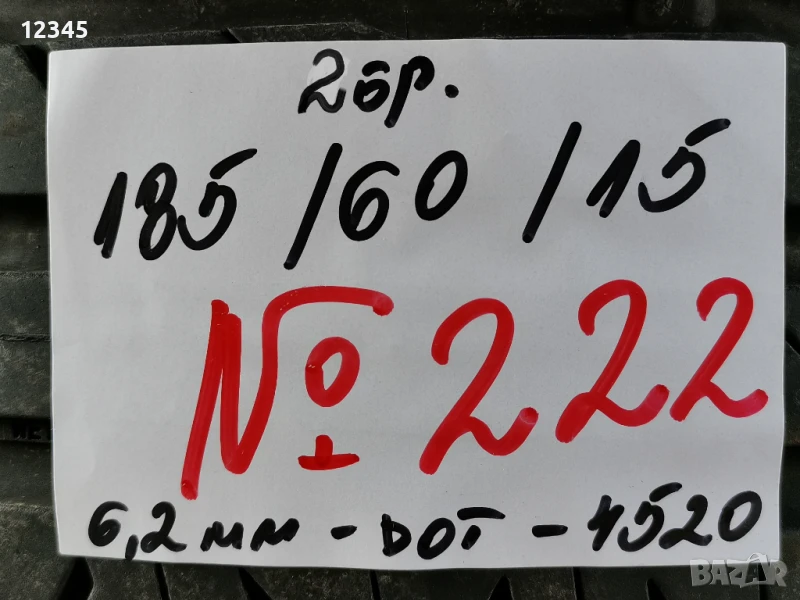 12345
2бр.
185/60/15
№222
6,2мм - DOT - 4520
BAZAR